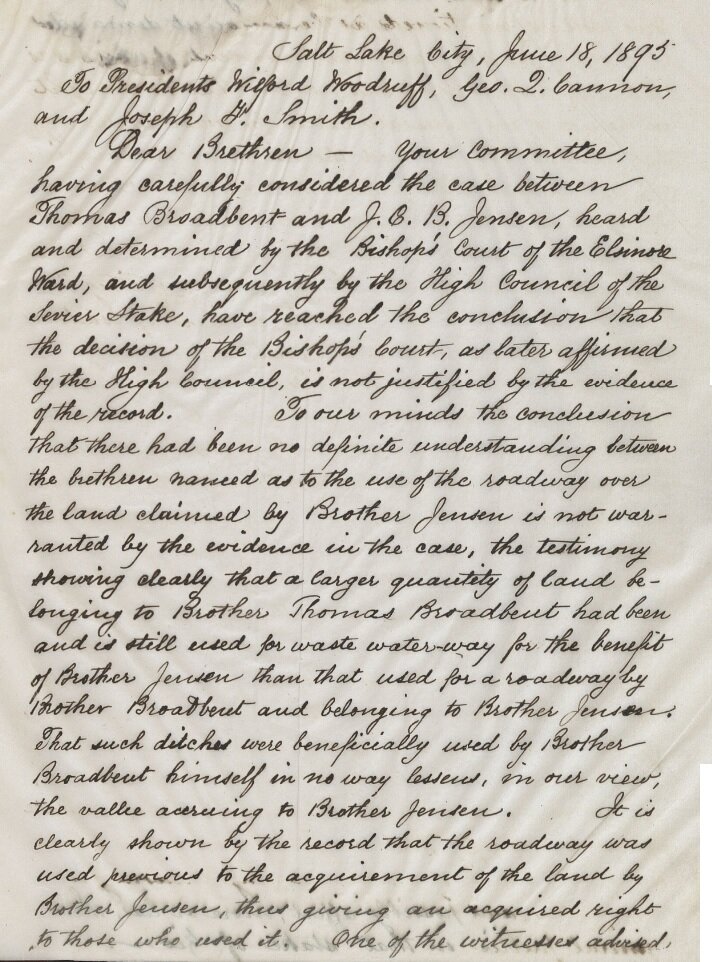 Salt Lake City, June 18, 1895
To Presidents Wilford Woodruff, Geo. Q. Cannon,
and Joseph F. Smith.
Dear Brethren — Your committee,
having carefully considered the case between
Thomas Broadbent and J. C. B. Jensen, heard
and determined by the Bishop's Court of the Elsinore
Ward, and subsequently by the High Council of the
Sevier Stake, have reached the conclusion that
the decision of the Bishop's Court, as later affirmed
by the High Council, is not justified by the evidence
of the record. To our minds the conclusion
that there had been no definite understanding between
the brethren named as to the use of the roadway over
the land claimed by Brother Jensen is not war-
ranted by the evidence in the case, the testimony
showing clearly that a larger quantity of land be-
longing to Brother Thomas Broadbent had been
and is still used for waste water-way for the benefit
of Brother Jensen than that used for a roadway by
Brother Broadbent and belonging to Brother Jensen.
That such ditches were beneficially used by Brother
Broadbent himself in no way lessens, in our view,
the value accruing to Brother Jensen. It is
clearly shown by the record that the roadway was
used previous to the acquirement of the land by
Brother Jensen, thus giving an acquired right
to those who used it. One of the witnesses advised,